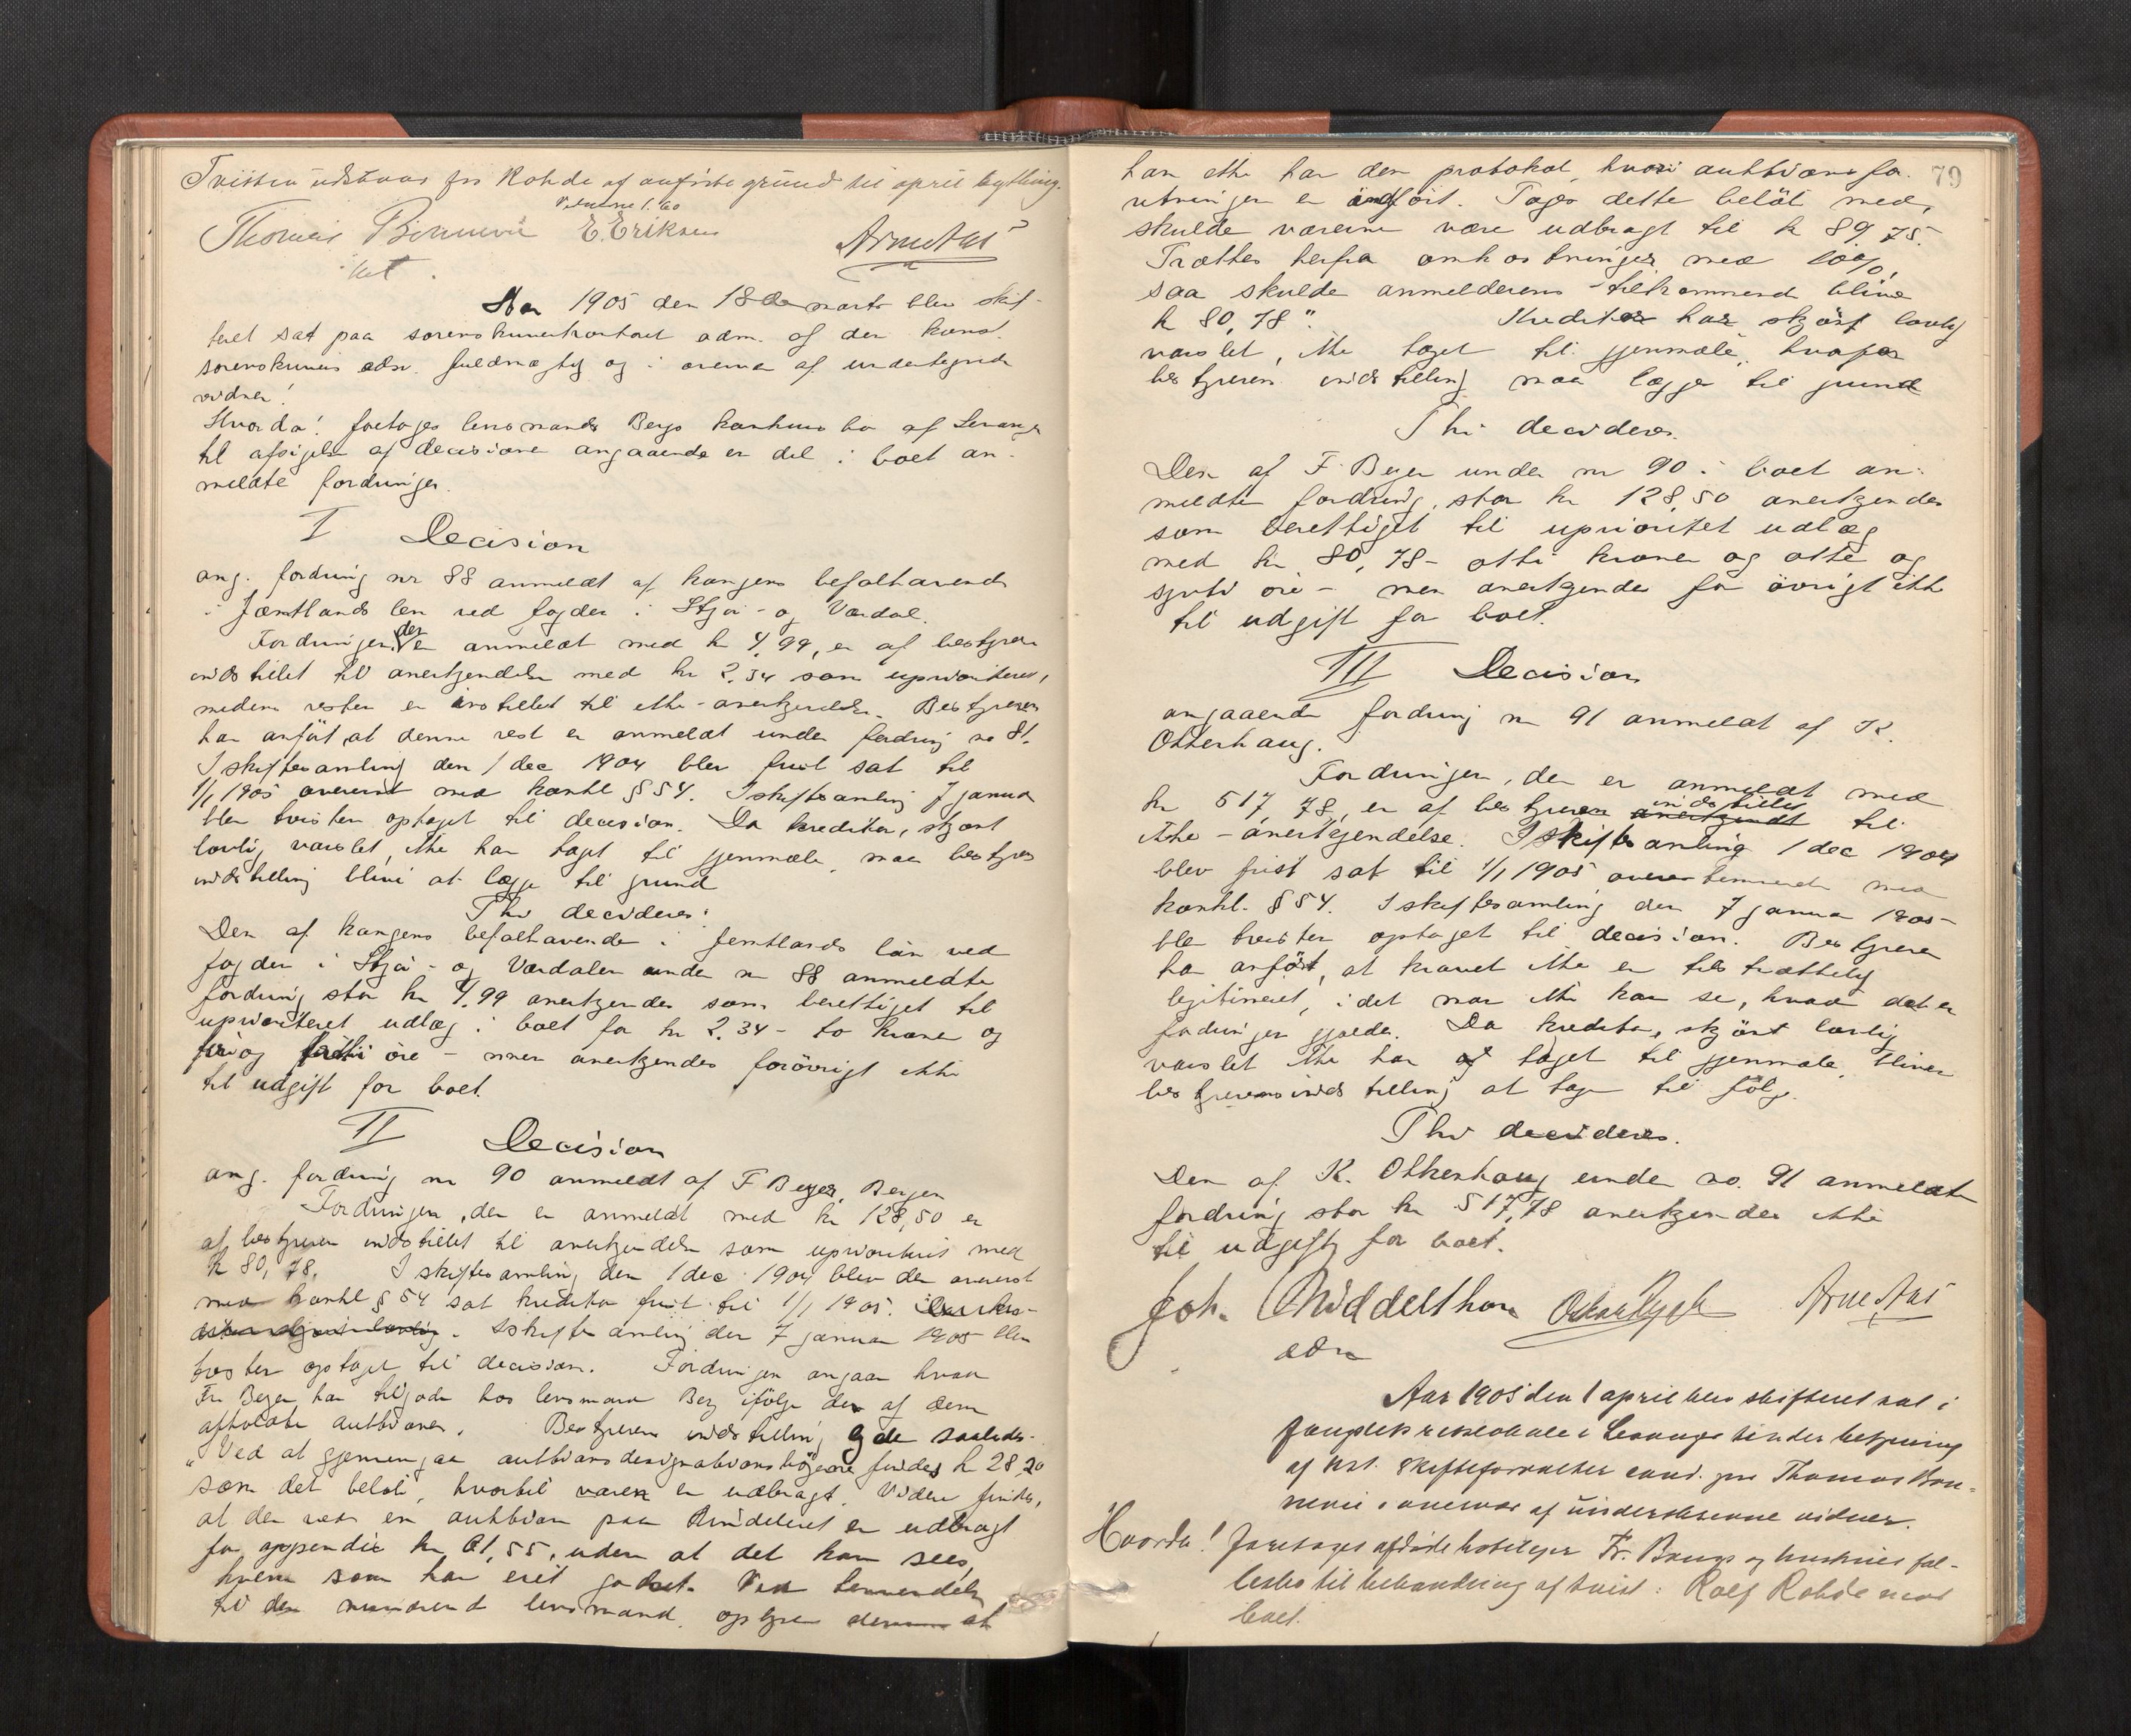 Tvisten udstaar for Rohde af anførte grund til april
Thomas Bonnevie E. Eriksen Arne Aas
kst.
Aar 1905 den 18de marts blev skif-
teret sat paa sorenskriverkontoret adm. af den konst.
sorenskrivers edsv. fuldmægtig og i overvær af undertegnede
vidner!
Hvorda! foretoges lensmand Bergs konkursbo af Levanger
til afsigelse af decisione angaaende en del i boet an-
meldte fordringer.
I Decision
ang. fordring nr 88 anmeldt af kongens befalhavende
i Jæmtlands len ved fogden i Stjør- og Værdal.
Fordringen, der er anmeldt med kr 4,99, er af bestyreren
indstillet til anerkjendelse med kr 2.34 som uprioriteret,
medens resten er instillet til ikke-anerkjendelse. Bestyreren
har anført, at denne rest er anmeldt under fordring no 81.
I skiftesamling den 1 dec 1904 blev frist sat til
1/1 1905 overenst med konkl § 54. I skiftesamling 7 januar
blev tvisten optaget til decision. Da kreditor, skjønt
lovlig varslet, ikke har taget til gjenmæle, maa bestyrer
indstilling blive at lægge til grund
Thi decideres:
Den af kongens befalhavende i Jemtlands län ved
fogden i Stjør- og Værdalen under nr 88 anmeldte
fordring stor kr 4,99 anerkjendes som berettiget til
uprioriteret udlæg i boet for kr 2.34 - to kroner og
fire og tretti øre - men anerkjendes forövrigt ikke
til udgift for boet.
II Decision
ang. fordring nr 90 anmeldt af F Beyer, Bergen
Fordringen, der er anmeldt med kr 128,50 er
af bestyreren indstillet til anerkjendelse som uprioritert med
kr 80,78. I skiftesamling den 1 dec 1904 blev der overenst
med konkl § 54 sat kreditor frist til 1/1 1905.
I skiftesamling den 7 januar 1905 blev
tvisten optaget til decision. Fordringen angaar hvad
Fr Beyer har tilgode hos lensmand Berg ifølge den af dem
afholdte auktioner. Bestyrerens indstilling lyder saaledes:
"Ved at gjennemgaa auktionsdesignationsbøgerne findes kr 28,20
som det beløb, hvortil varen er udbragt. Videre findes,
at der ved en auktion paa Rindeleiret er udbragt
for appendix kr 61,55, uden at det kan sees,
hvem som har eiet godset. Ved henvendelse
til den nuværende lensmand oplyser at
79
han ikke har den protokol, hvori auktionsfor-
retningen er indført. Tages dette beløb med,
skulde varerne være udbragt til kr 89,75.
Trættes herfra omkostninger med 10%,
saa skulde anmelderens tilkommende blive
kr 80,78". Kreditor har, skjønt lovlig
varslet, ikke taget til gjenmæle, hvorfor
bestyrerens indstilling maa lægges til grund
Thi decideres.
Den af F. Beyer under nr 90 i boet an-
meldte fordring, stor kr 128,50 anerkjendes
som berettiget til uprioritet udlæg
med kr 80,78 - otti kroner og otte og
sytti öre - men anerkjendes for övrigt ikke
til udgift for boet.
III Decision
angaaende fordring nr 91 anmeldt af K.
Olkenhaug.
Fordringen, der er anmeldt med
kr 517,78, er af bestyreren indstillet anerkjendt til
ikke-anerkjendelse. I skiftesamling 1 dec 1904
blev frist sat til 1/1 1905 overenstemmende med
konkl. § 54. I skiftesamling den 7 januar 1905
blev tvisten optaget til decision. Bestyreren
har anført, at kravet ikke er tilstrækkelig
legitimeret, idet man ikke kan se, hvad det er
fordringen gjælder. Da kreditor, skjönt lovlig
varslet ikke har taget til gjenmæle, bliver
bestyrerens indstilling at tage til følge.
Thi decideres.
Den af K. Olkenhaug under no. 91 anmeldte
fordring stor kr 517,78 anerkjendes ikke
til udgift for boet.
Joh. Middelthon Arne Aas
edsv
Aar 1905 den 1 april blev skifteret sat i
fængslets retslokale i Levanger under bestyring
af kst. skifteforvalter cand. jur Thomas Bon-
nevie i overvær af underskrevne vidner.
Hvorda! foretoges afdøde hoteleier Fr. Baugs og hustrues fæl-
lesbo til behandling af tvist: Rolf Rohde mod
boet.